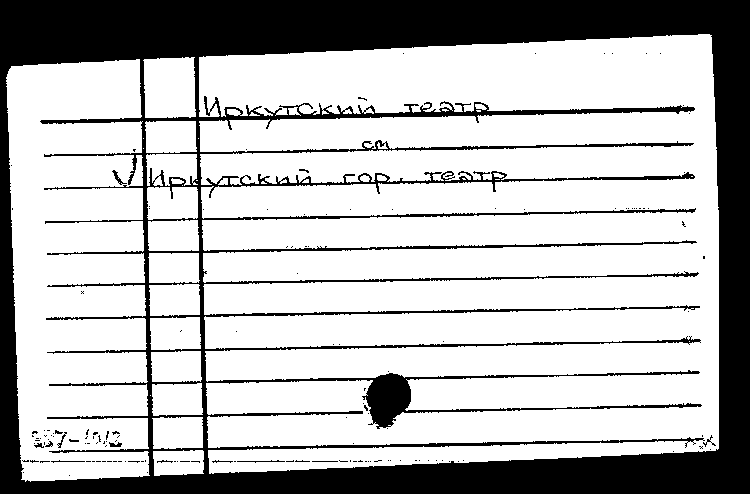 Иркутский театр
см
Иркутский гор. театр